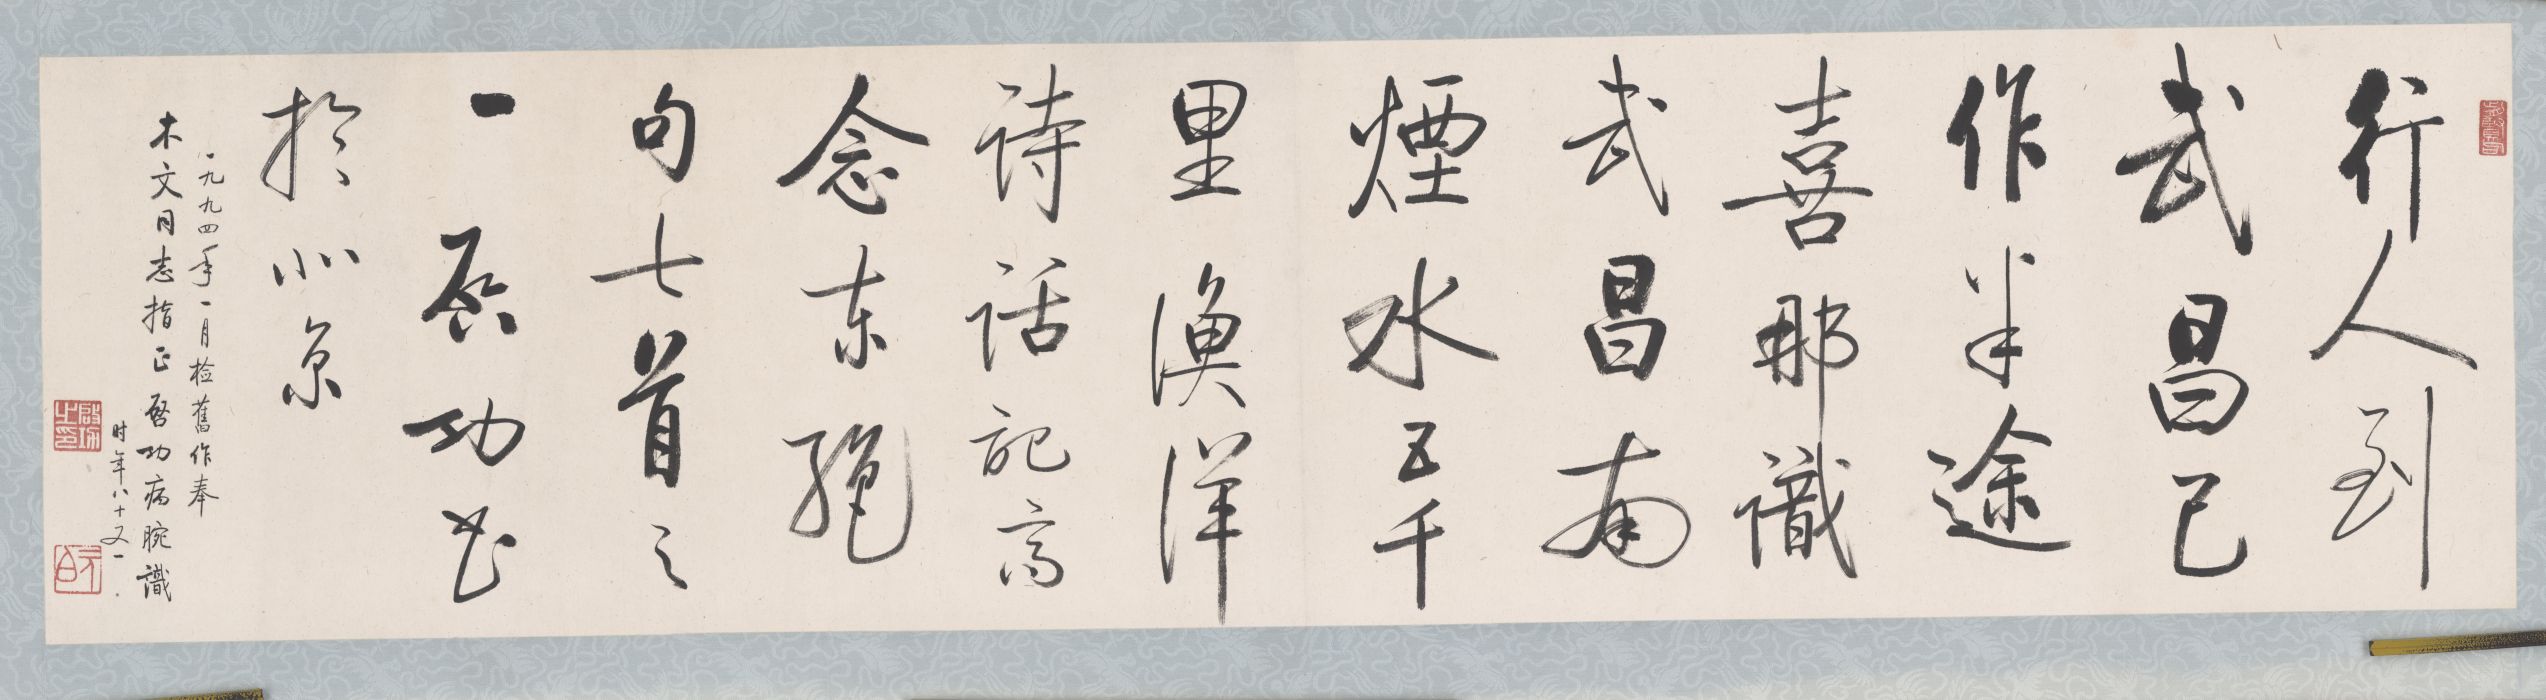 行人到
武昌已
作半途
喜那識
武昌南
煙水五千
里漁洋
诗话記高
念东绝
句七首之
一启功书
於北京
一九九四年一月检舊作奉
木文同志指正 啓功病腕識
时年八十又一
啟功之印
元白